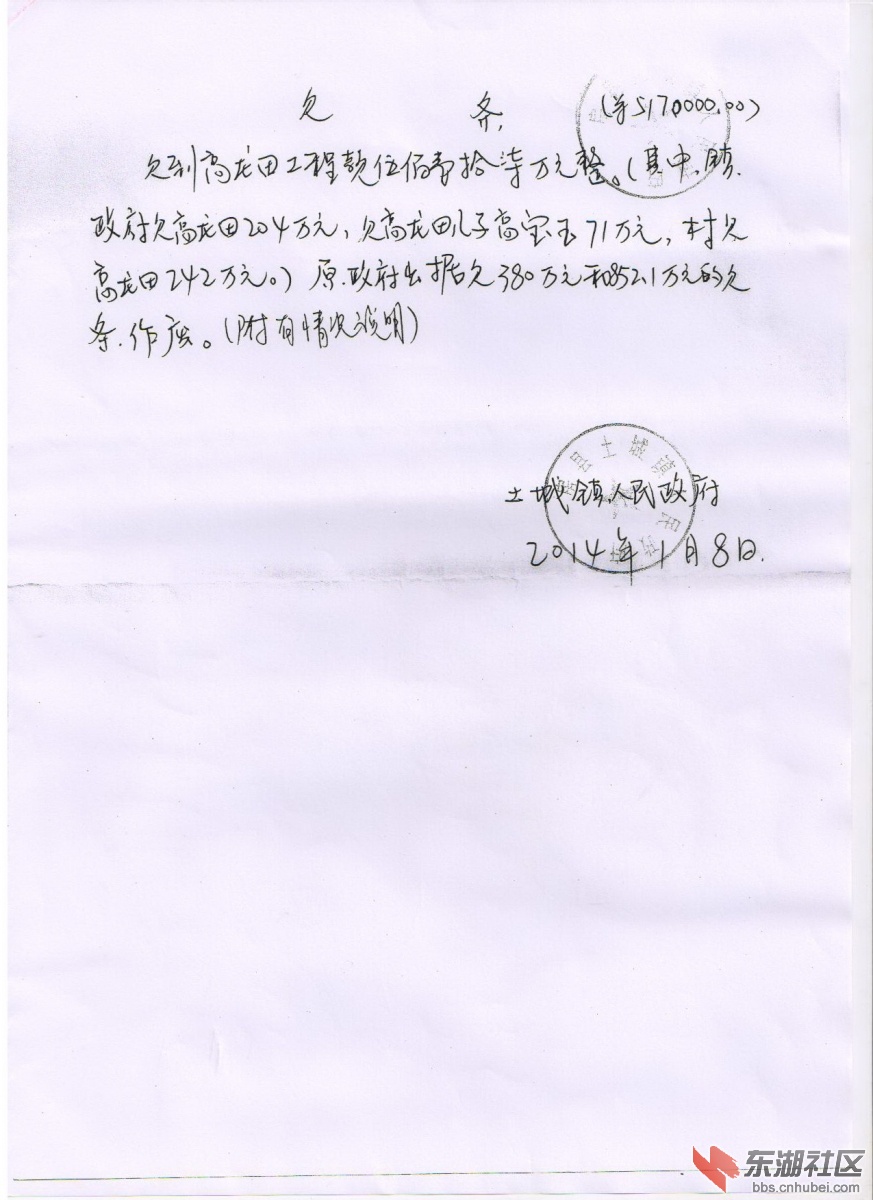 欠 条 (¥5170000.00)
欠到高龙田工程款伍佰壹拾柒万元整。(其中镇
政府欠高龙田204万元,欠高龙田儿子高宝玉71万元,村欠
高龙田242万元。)原政府出据欠380万元和852.1万元的欠
条作废。(附有情况说明)
土城镇人民政府
2014年1月8日.
东湖社区
bbs.cnhubei.com